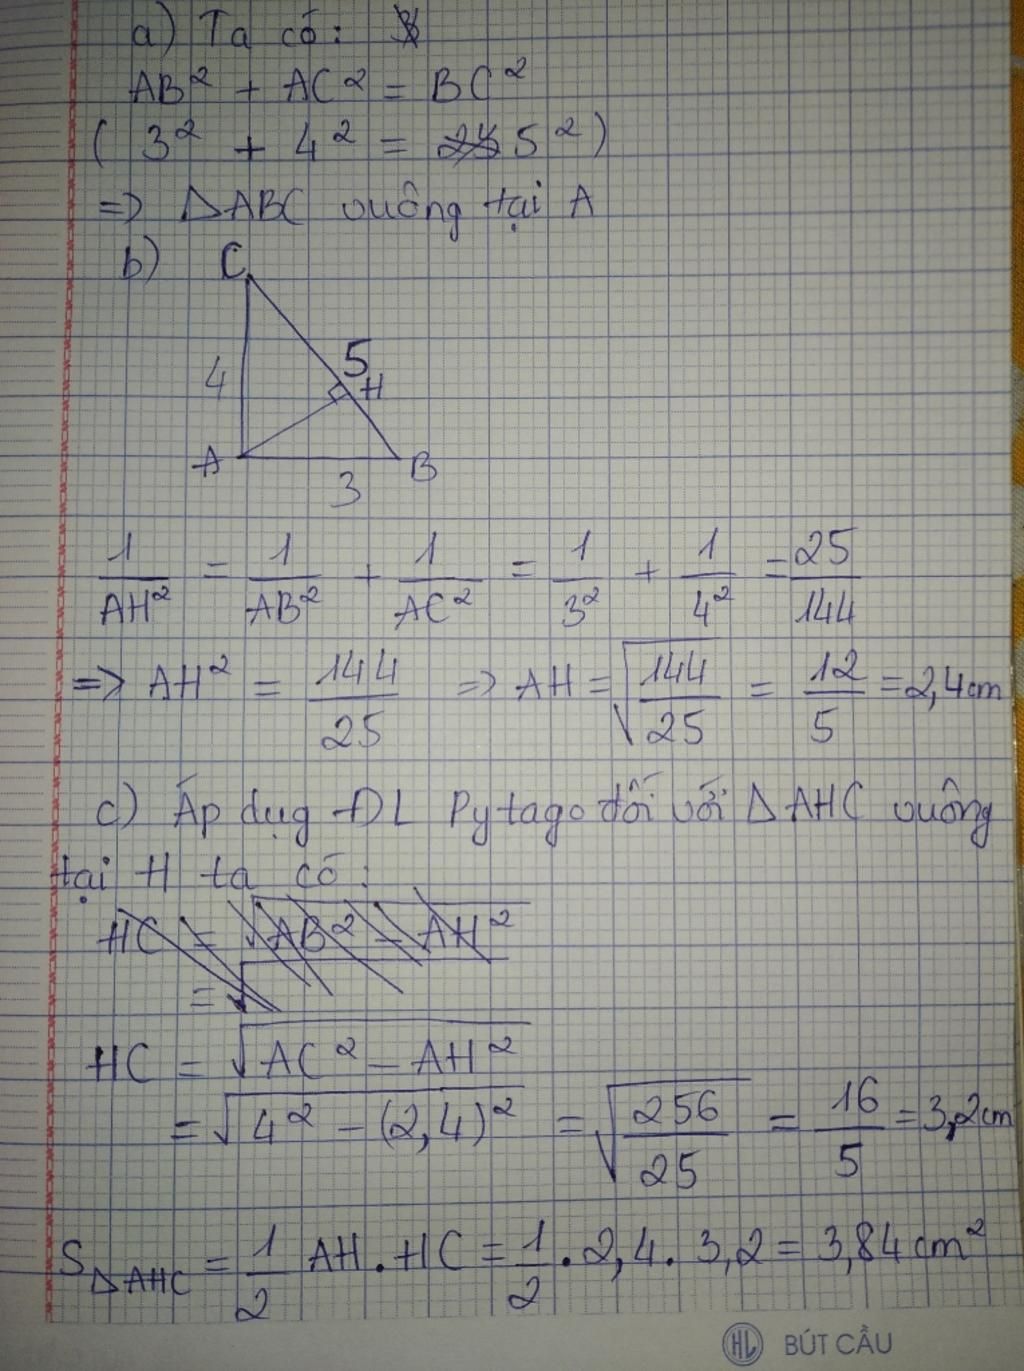 a) Ta có:
AB² + AC² = BC²
( 3² + 4² = 5² )
=> ΔABC vuông tại A
b)
C
5
4
H
A
B
3
1/AH² = 1/AB² + 1/AC² = 1/3² + 1/4² = 25/144
=> AH² = 144/25 => AH = √(144/25) = 12/5 = 2,4cm
c) Áp dụg ĐL Pytago đối với ΔAHC vuông
tại H ta có:
HC = √(AB² - AH²)
= √
HC = √(AC² - AH²)
= √(4² - (2,4)²) = √(256/25) = 16/5 = 3,2cm
S ΔAHC = 1/2 AH . HC = 1/2 . 2,4 . 3,2 = 3,84 cm²
HL BÚT CẦU